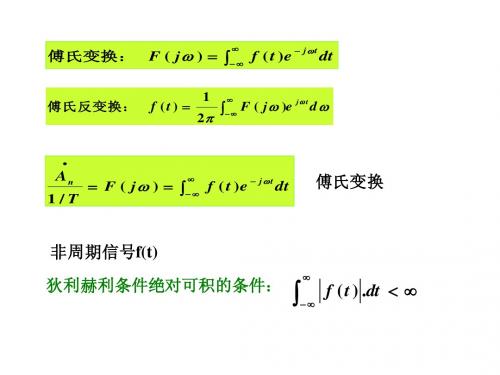 傅氏变换： F ( jω ) = ∫_{-∞}^{∞} f ( t )e^{- jωt} dt
傅氏反变换： f ( t ) = 1/2π ∫_{-∞}^{∞} F ( jω )e^{jωt} d ω
Ȧ_n / (1 / T) = F ( jω ) = ∫_{-∞}^{∞} f ( t )e^{- jωt} dt 傅氏变换
非周期信号f(t)
狄利赫利条件绝对可积的条件： ∫_{-∞}^{∞} | f ( t ) | .dt < ∞